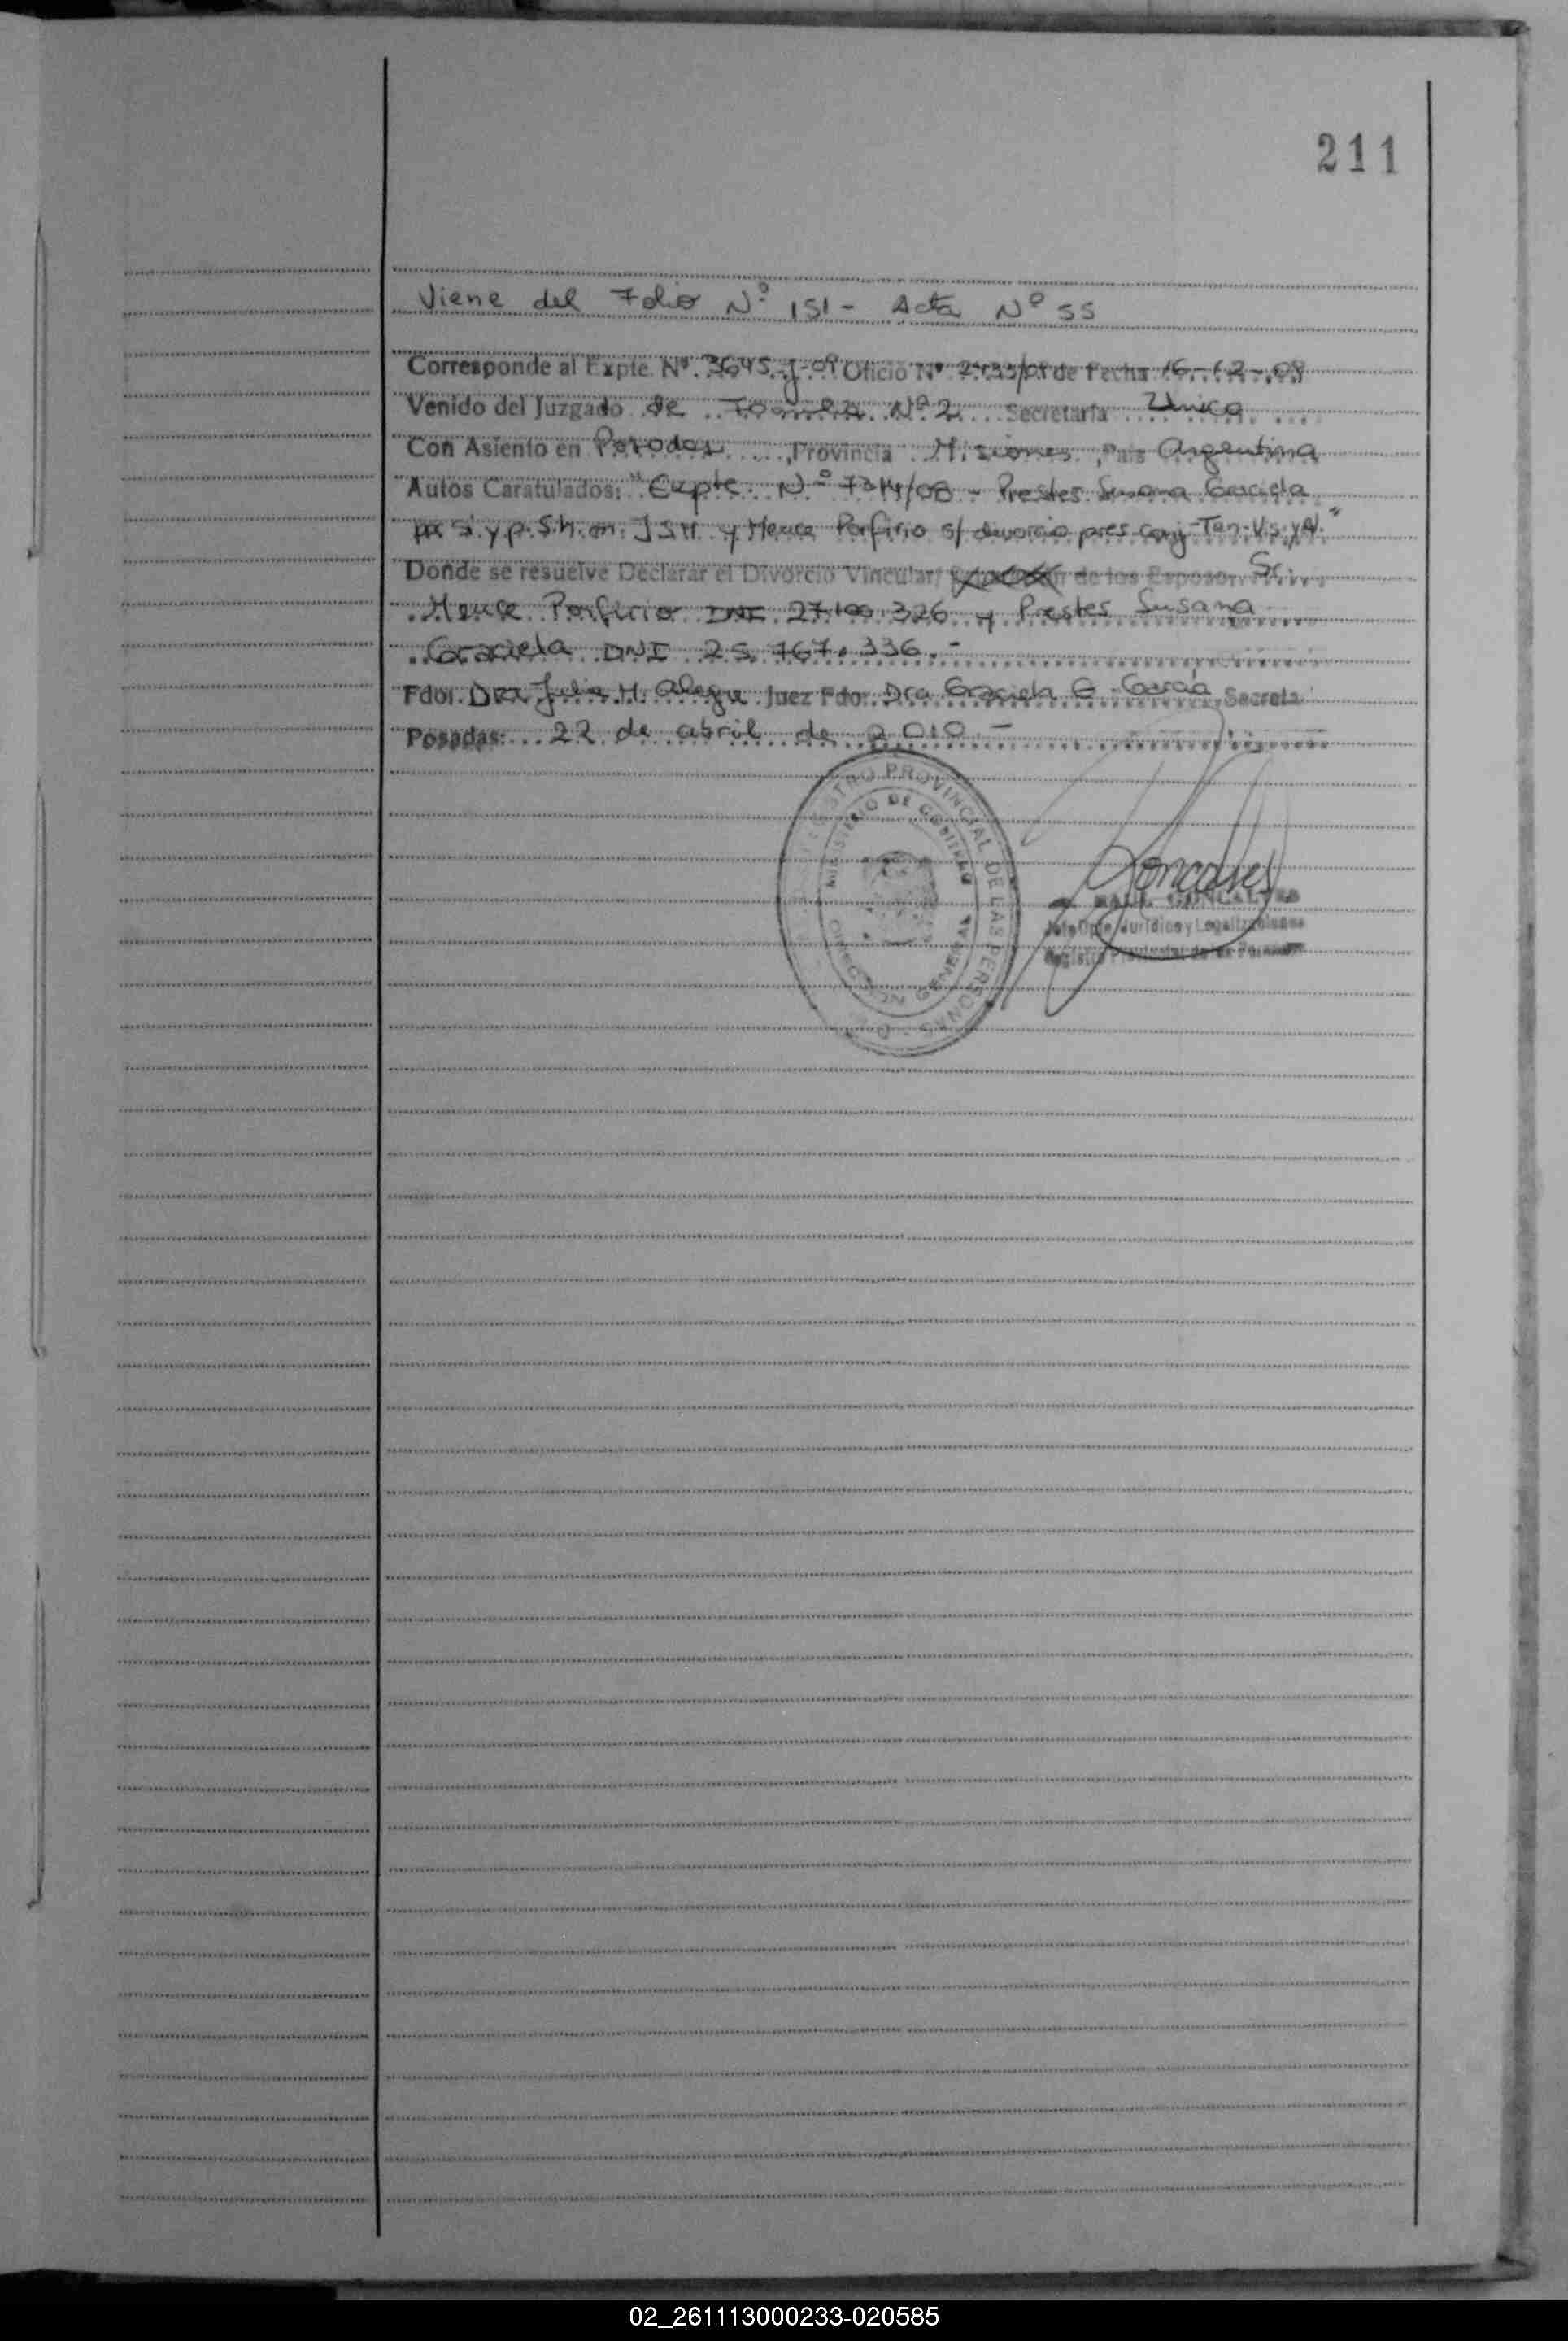 211
Viene del Folio Nº 151 - Acta Nº 55
Corresponde al Expte. Nº 3645-J-09 Oficio Nº 2433/09 de Fecha 16-12-09
Venido del Juzgado de Familia Nº 2 Secretaría Unica
Con Asiento en Posadas, Provincia Misiones, País Argentina
Autos Caratulados: "Expte. Nº 7314/08 - Prestes Susana Graciela
por sí y p. s. h. m. J S M y Meuce Porfirio s/ divorcio pres. conj - Ten. Vis. y Al."
Donde se resuelve Declarar el Divorcio Vincular/ de los Esposos Sr.
Meuce Porfirio DNI 27.100.326 y Prestes Susana
Graciela DNI 25.767.336.-
Fdo: Dra Julia M. Alegre Juez Fdo: Dra Graciela E. García Secreta.
Posadas: 22 de abril de 2010.-
REGISTRO PROVINCIAL DE LAS PERSONAS
MINISTERIO DE GOBIERNO
DIRECCION GENERAL
Goncalves
RAUL GONCALVES
Jefe Dpto. Jurídico y Legalizaciones
Registro Provincial de las Personas
02_261113000233-020585